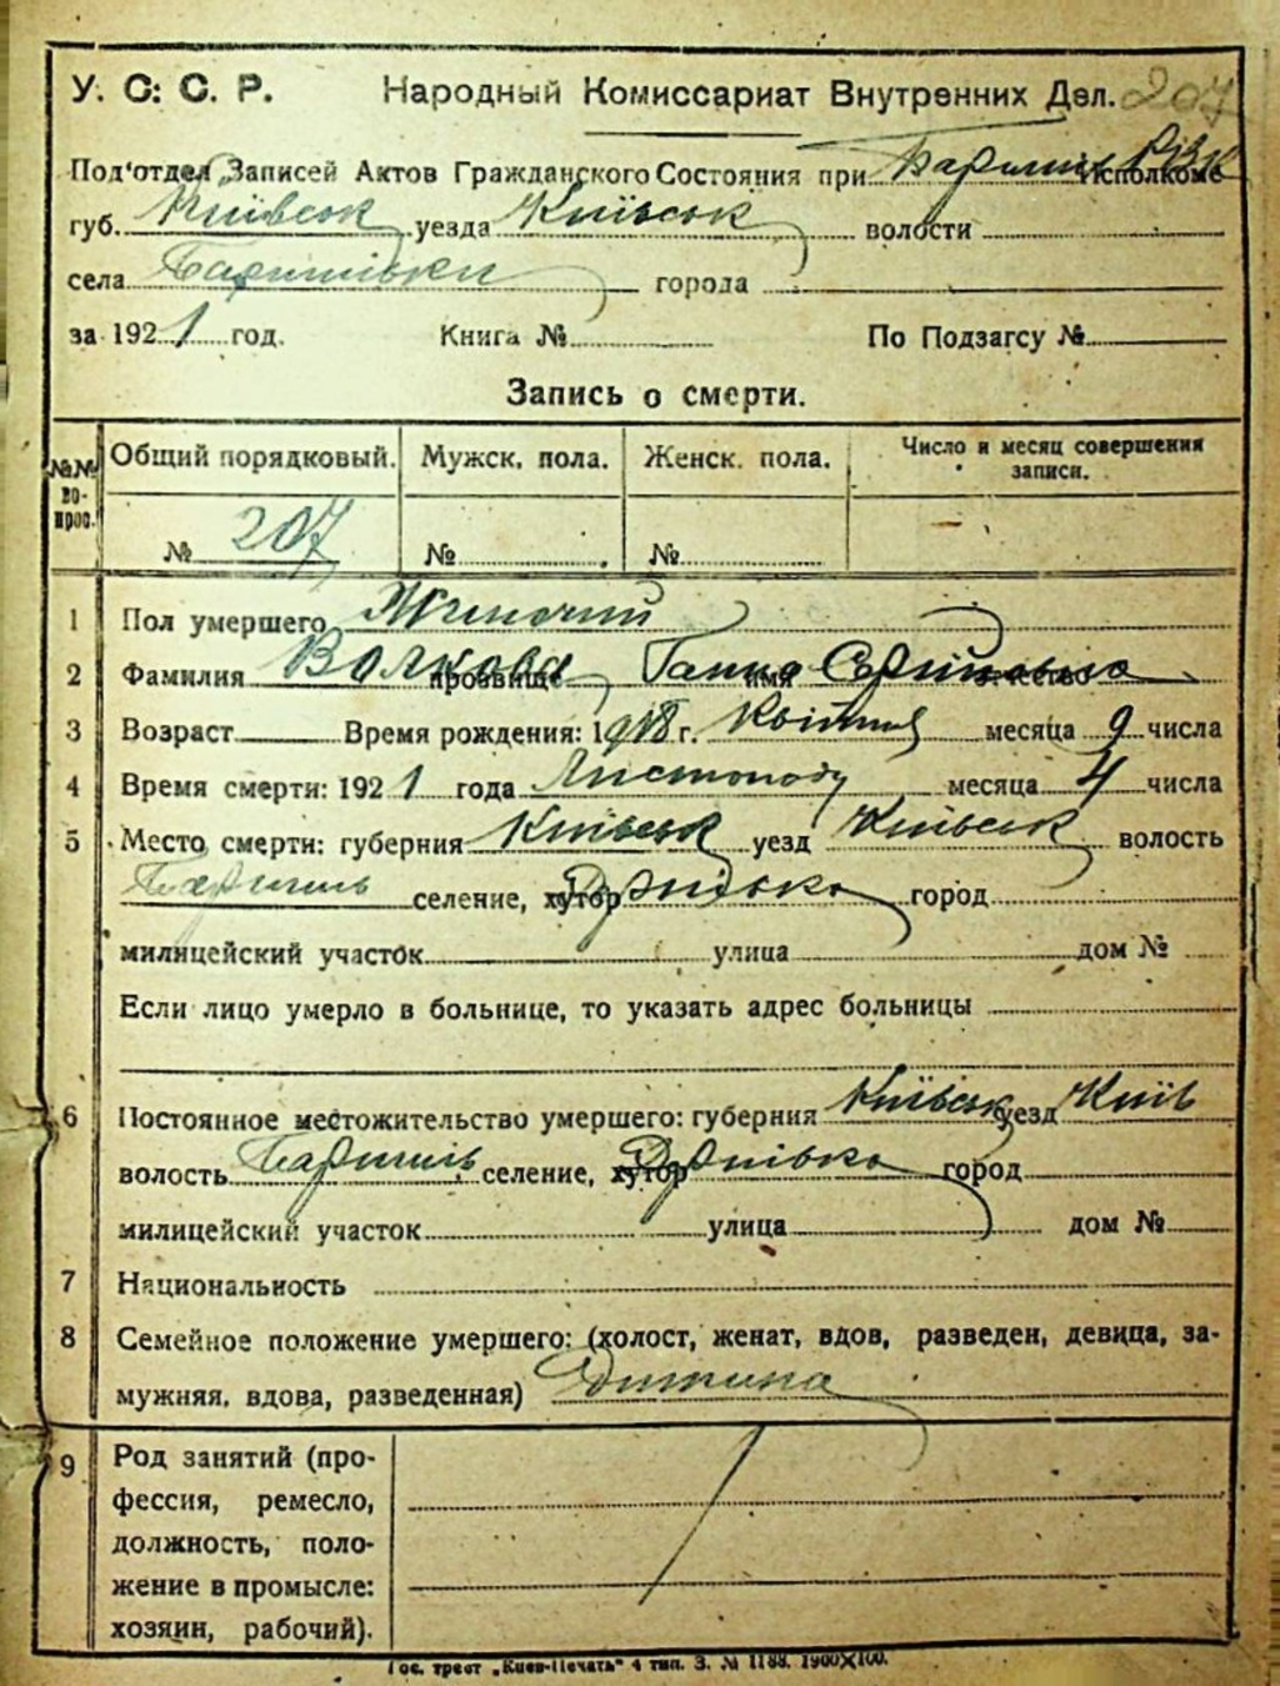 У. С. С. Р. Народный Комиссариат Внутренних Дел. 207
Под'отдел Записей Актов Гражданского Состояния при Исполкоме
губ. Київськ уезда Київськ волости
села Баришівки города
за 1921 год. Книга № По Подзагсу №
Запись о смерти.
№№ вопрос. Общий порядковый. Мужск. пола. Женск. пола. Число и месяц совершения записи.
№ 207 № №
1 Пол умершего Жіночий
2 Фамилия Волкова прозвище Ганна имя отчество
3 Возраст Время рождения: 1918 г. Квітня месяца 9 числа
4 Время смерти: 1921 года Листопаду месяца 4 числа
5 Место смерти: губерния Київськ уезд Київськ волость
Баришів селение, хутор город
милицейский участок улица дом №
Если лицо умерло в больнице, то указать адрес больницы
6 Постоянное местожительство умершего: губерния Київськ уезд Київ
волость Баришів селение, хутор город
милицейский участок улица дом №
7 Национальность
8 Семейное положение умершего: (холост, женат, вдов, разведен, девица, за-
мужняя, вдова, разведенная) Дитина
9 Род занятий (про-
фессия, ремесло,
должность, поло-
жение в промысле:
хозяин, рабочий).
Гос. трест „Киев-Печать" 4 тип. З. № 1188. 1900X100.